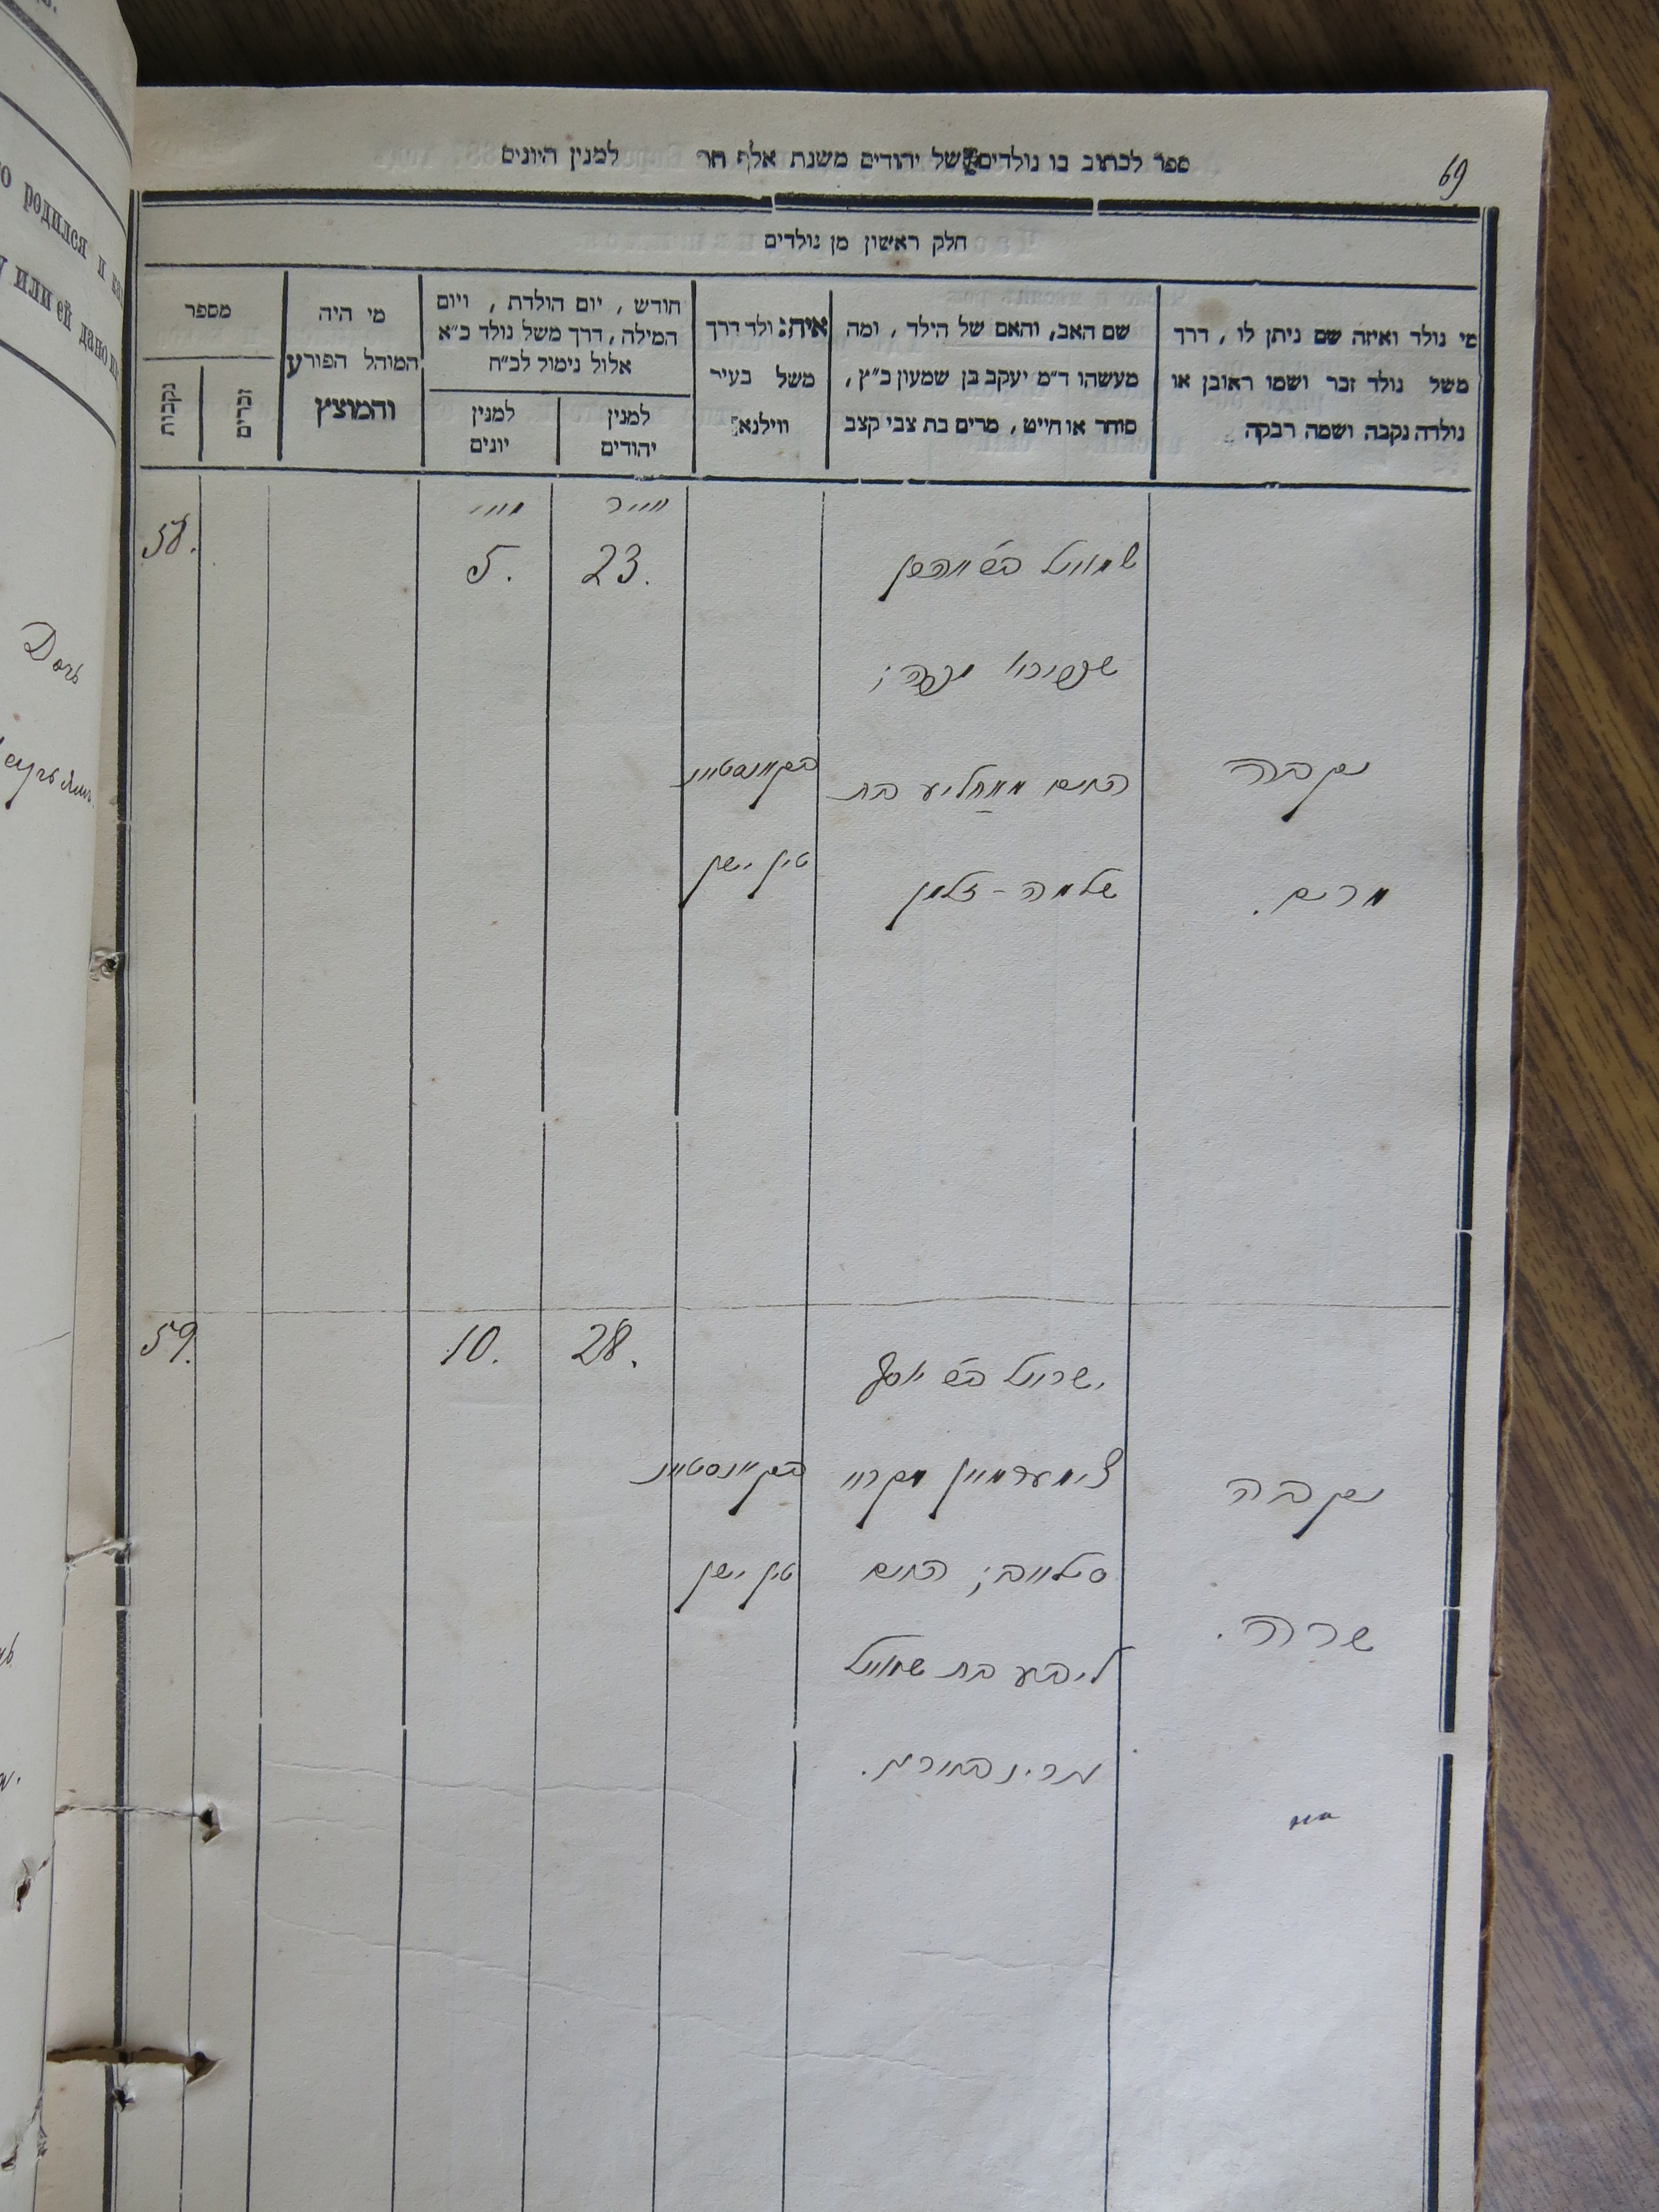 ספר לכתוב בו נולדים של יהודים משנת אלף תת למנין היונים
69
חלק ראשון מן נולדים
מי נולד ואיזה שם ניתן לו, דרך
משל נולד זכר ושמו ראובן או
נולדה נקבה ושמה רבקה
שם האב, והאם של הילד, ומה
מעשהו ד״מ יעקב בן שמעון כ״ץ,
סוחר או חייט, מרים בת צבי קצב
איה: ולד דרך
משל בעיר
ווילנא
חודש, יום הולדת, ויום
המילה, דרך משל נולד כ״א
אלול נימול לכ״ח
למנין
יהודים
למנין
יונים
מי היה
המוהל הפורע
והמוצץ
מספר
זכרים
נקבות
נקבה
מרים.
שמואל
האם בת
שלמה-זלמן
טין ישן
23.
5.
58.
נקבה
שרה.
ישראל יוסף
צימערמאן
האם
ליבע בת שמואל
טין ישן
28.
10.
59.
родился и
или ей дано
Дочь